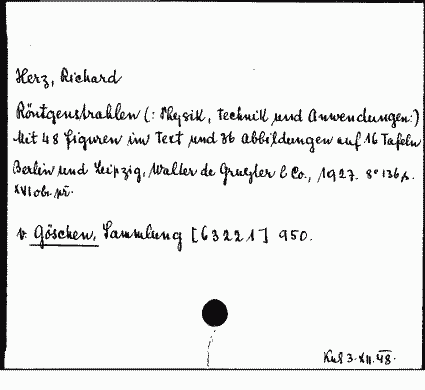 Herz, Richard
Röntgenstrahlen (: Physik, Technik und Anwendungen:)
Mit 48 Figuren im Text und 36 Abbildungen auf 16 Tafeln
Berlin und Leipzig, Walter de Gruyter & Co., 1927. 8° 136 p.
XVI ob. př.
v. Göschen, Sammlung [63221] 950.
3. XII. 48.